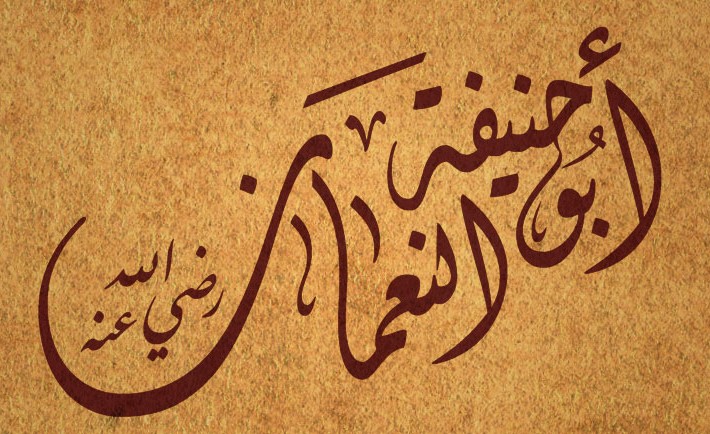 أبُو حنيفة
النعمان
رضي الله
عنه